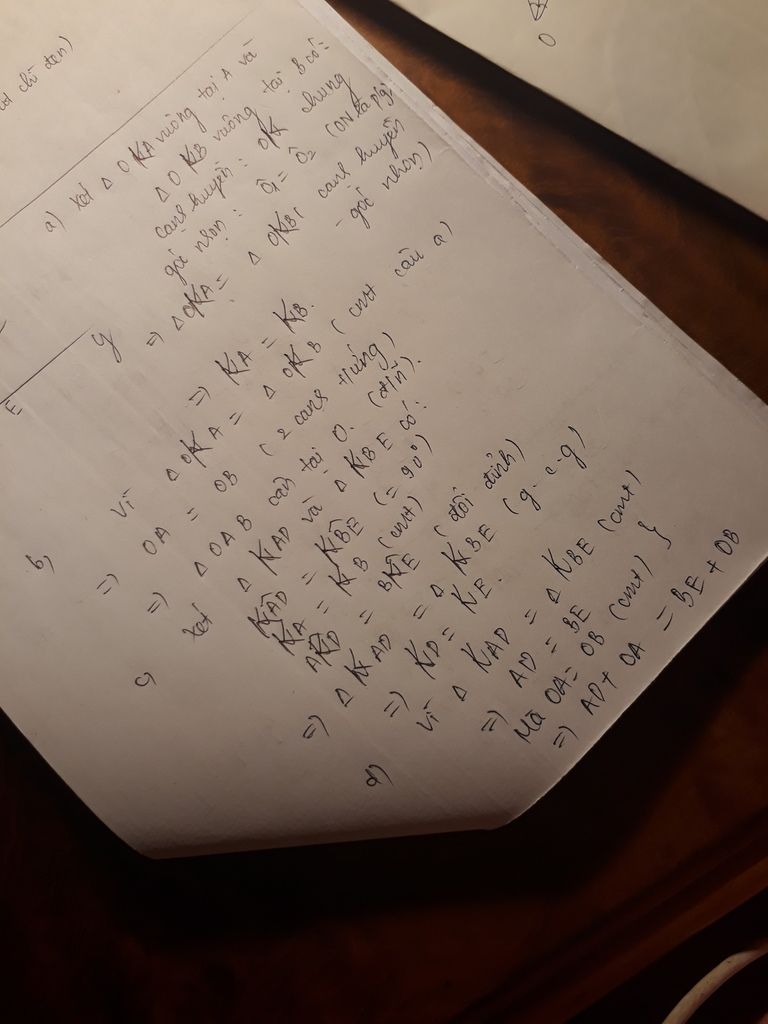 chì đen)
a) Xét Δ OKA vuông tại A và
Δ OKB vuông tại B có:
cạnh huyền: OK chung
góc nhọn: Ô1 = Ô2 (ON là p/g)
=> ΔOKA = Δ OKB ( cạnh huyền
- góc nhọn)
=> KA = KB.
b) Vì Δ OKA = Δ OKB ( cmt câu a)
=> OA = OB ( 2 cạnh tướng)
=> Δ OAB cân tại O. (đ/n).
c) Xét Δ KAD và Δ KBE có:
KÂD = KB̂E (= 90°)
KA = KB (cmt)
AK̂D = BK̂E (đối đỉnh)
=> Δ KAD = Δ KBE (g-c-g)
=> KD = KE.
d) Vì Δ KAD = Δ KBE (cmt)
=> AD = BE
Mà OA = OB (cmt) }
=> AD + OA = BE + OB
E
O